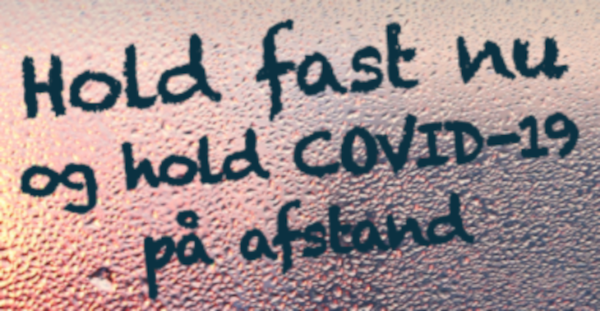 Hold fast nu
og hold COVID-19
på afstand